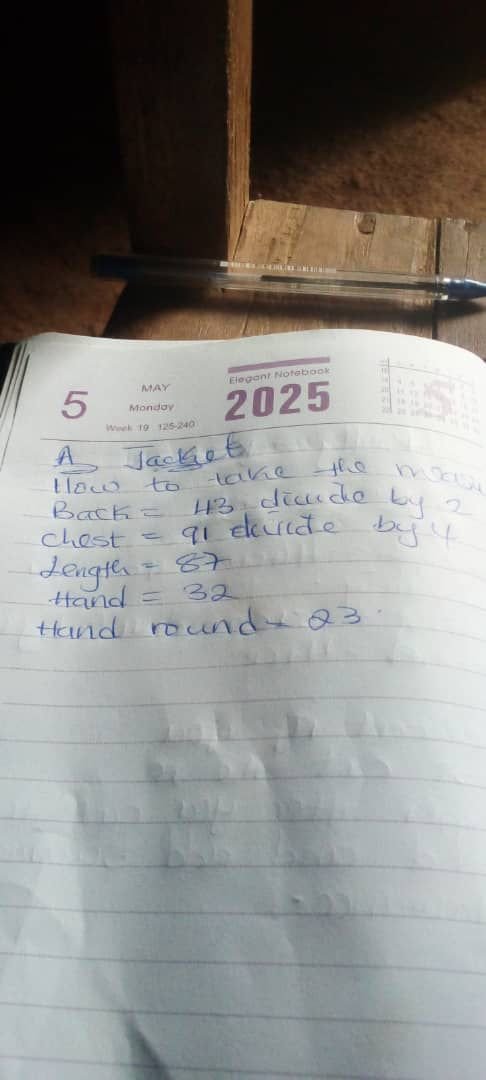 Elegant Notebook
5 MAY 2025
Monday
Week 19 125-240
A Jacket
How to take the
Back = 43 divide by 2
Chest = 91 divide by 4
Length = 87
Hand = 32
Hand round = 23.